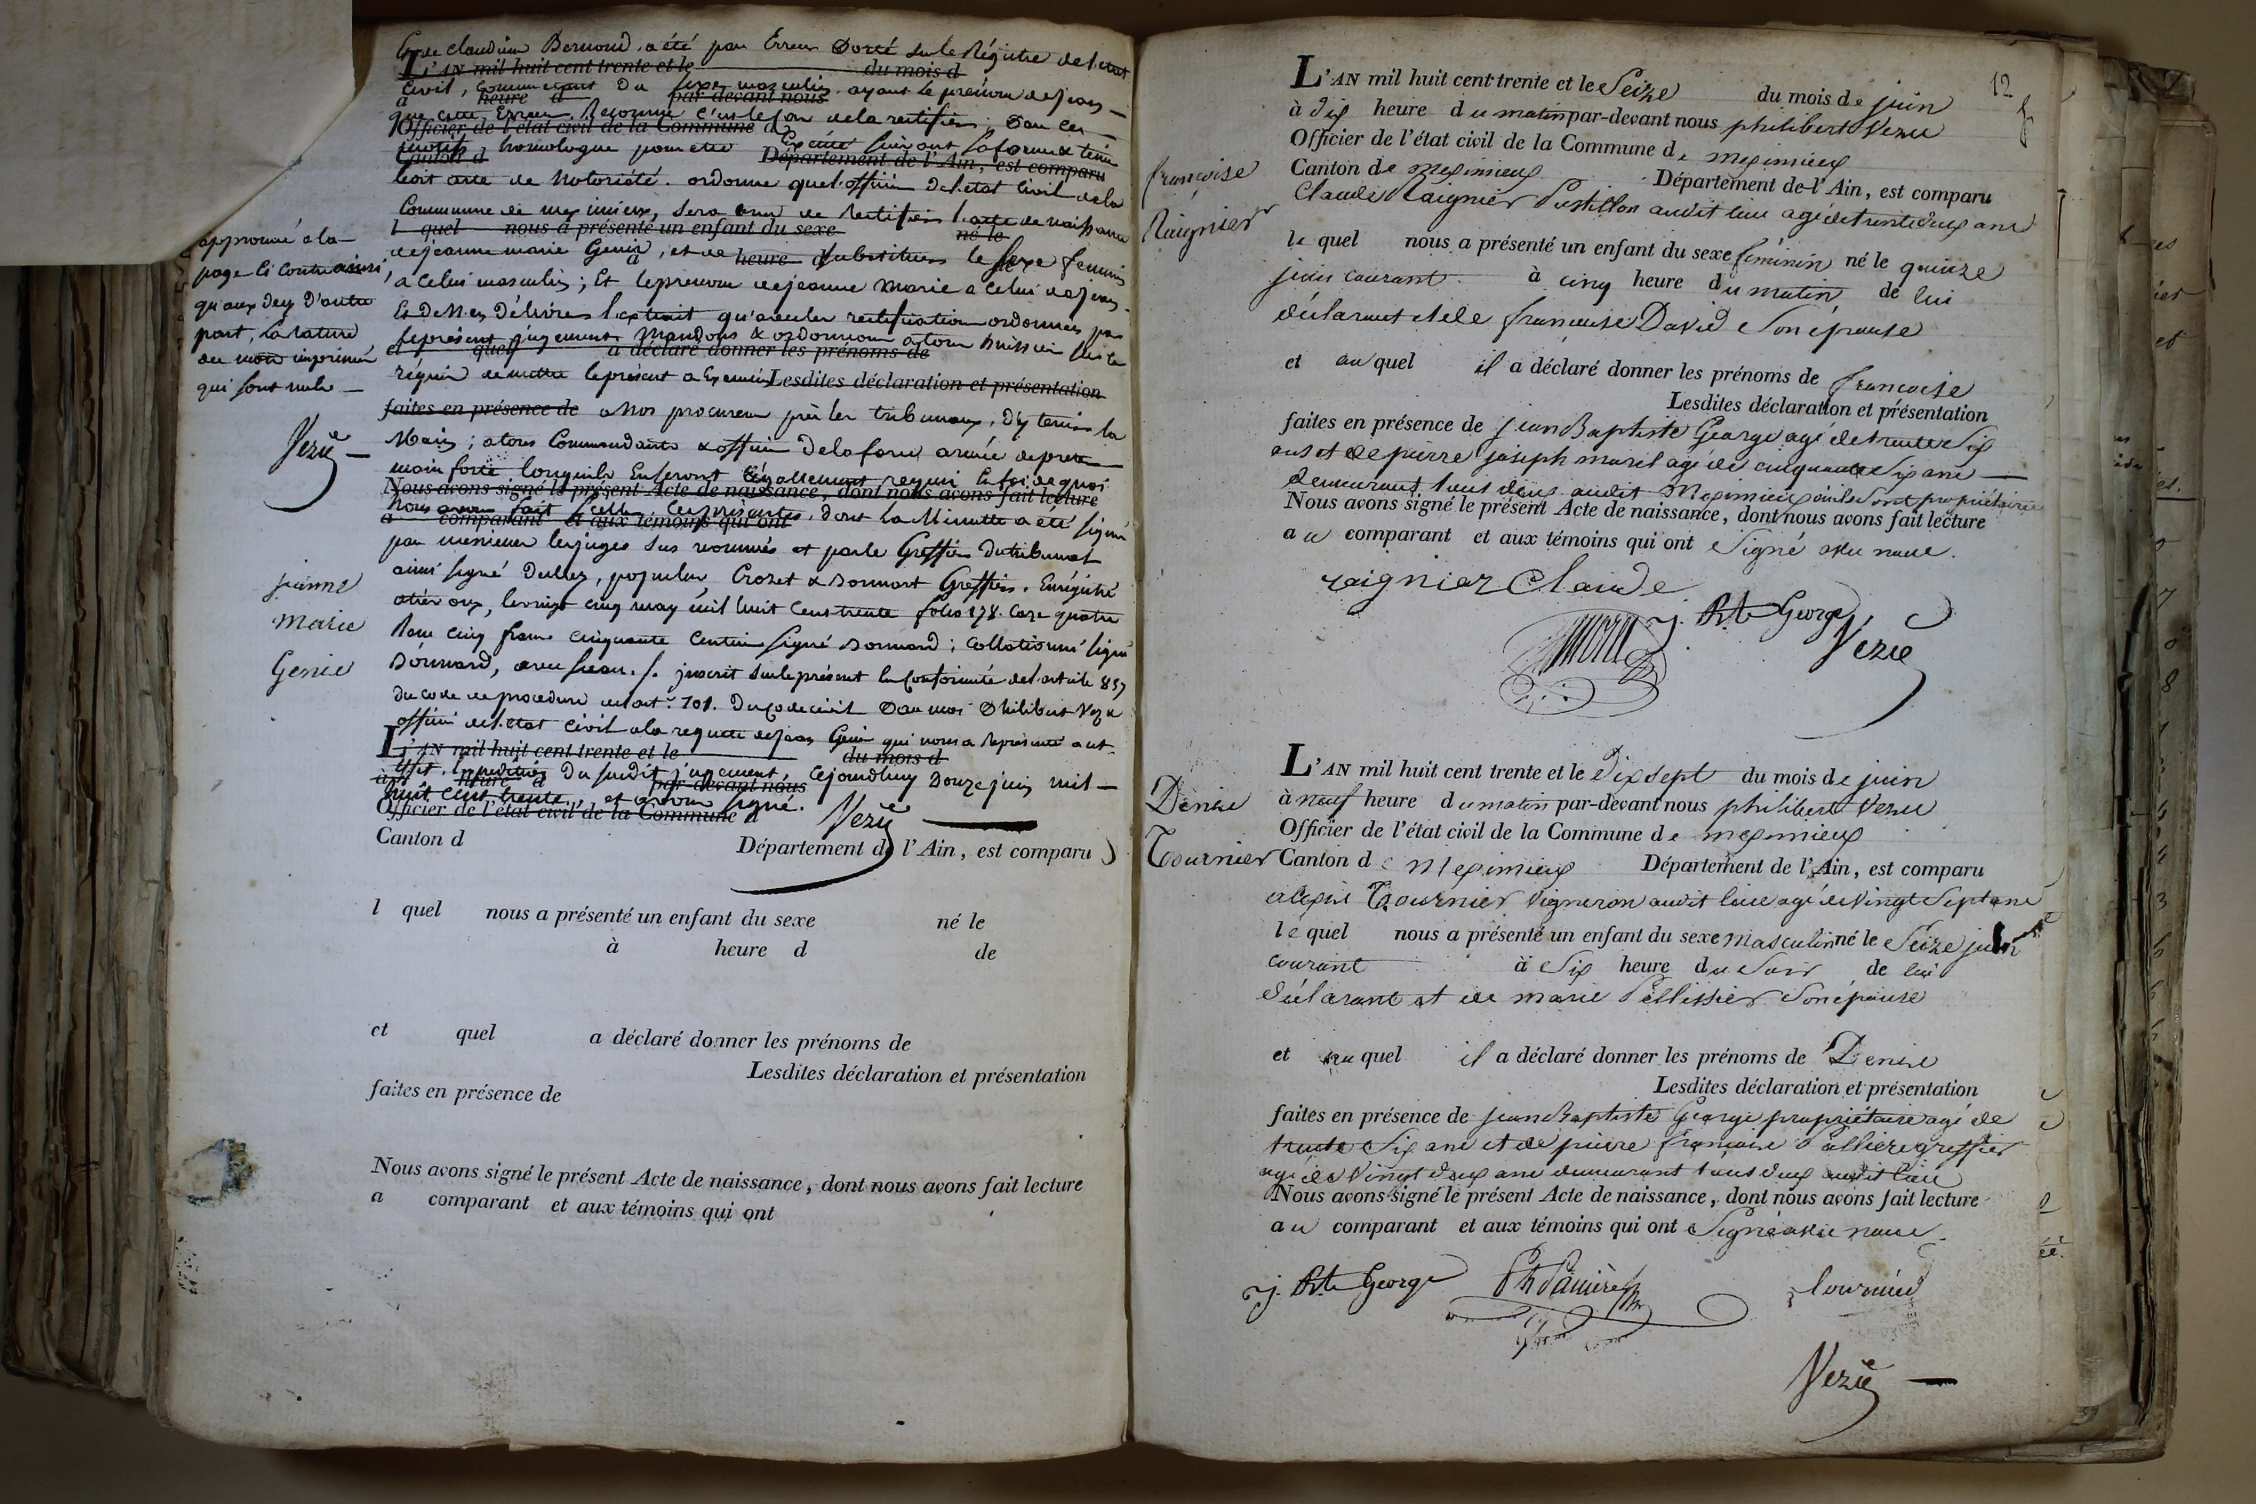 de Claudine Bernoud, a été par Erreur porté sur le Régistre de l'état
L'AN mil huit cent trente et le du mois d
civil, comme étant du sexe masculin ayant le prénom de jean
a heure d par-devant nous
que cette Erreur Reconnue c'est le cas de la rectifier; Par ces
Officier de l'état civil de la Commune d
motifs homologue pour être Exécuté suivant sa forme & teneur
Canton d Département de l'Ain, est comparu
ledit acte de Notoriété. ordonne que l'officier de l'état civil de la
Commune de meximieux, sera tenu de Rectifier l'acte de naissance
l quel nous a présenté un enfant du sexe né le
de jeanne marie Genin, et de substituer le sexe feminin
à heure d
a Celui masculin; Et le prenom de jeanne Marie a Celui de jean
Et de N'en Délivrer l'extrait qu'avec les rectification ordonnées par
le présent jugement Mandons & ordonnons a tous huissiers sur ce
et quel a déclaré donner les prénoms de
requis de mettre le présent a Execution
Lesdites déclaration et présentation
faites en présence de
a Nos procureurs près les tribunaux, d'y tenir la
Main; a tous Commandants & officiers de la force armée de preter
main forte lorsqu'ils En seront légalement requis En foi de quoi
Nous avons signé le présent Acte de naissance, dont nous avons fait lecture
Nous avons fait sceller les présentes, dont la Minutte a été signée
a comparant et aux témoins qui ont
par messieurs les juges sus nommés et par le Greffier du tribunal
ainsi signé Crozet & Donnard Greffier. Enrégistré
a Trévoux, le vingt cinq may mil huit Cens trente folio 178. Case quatre
Reçu cinq francs cinquante Centimes signé Bonnard; Collationné signé
Donnard, avec sceau. /. inscrit sur le présent En Conformité de l'article 857
Du code de procedure et art. 101. Du Code civil Par moi Philibert Vezu
officier de l'état civil a la requette de jean Genin qui nous a représenté aut
L'AN mil huit cent trente et le du mois d
expedition Du susdit jugement, Cejourd'huy Douze juin mil
à heure d par-devant nous
huit cens trente, et avons signé.
Officier de l'état civil de la Commune d
Vezu
Canton d Département de l'Ain, est comparu
l quel nous a présenté un enfant du sexe né le
à heure d de
et quel a déclaré donner les prénoms de
Lesdites déclaration et présentation
faites en présence de
Nous avons signé le présent Acte de naissance, dont nous avons fait lecture
a comparant et aux témoins qui ont
approuvé a la
page Ci Contre ainsi
qu'aux Deux D'autre
part, la rature
des mots imprimés
qui sont nuls
Vezu
jeanne
Marie
Genin
12
L'AN mil huit cent trente et le Seize du mois de juin
à dix heure du matin par-devant nous philibert Vezu
Officier de l'état civil de la Commune de meximieux
Canton de meximieux Département de l'Ain, est comparu
Claude Raignier Postillon audit lieu agé de trente deux ans
le quel nous a présenté un enfant du sexe féminin né le quinze
juin courant à cinq heure du matin de lui
déclarant et de francoise David Son épouse
et au quel il a déclaré donner les prénoms de francoise
Lesdites déclaration et présentation
faites en présence de jean Baptiste George agé de trente Six
ans et de pierre joseph morel agé de cinquante Six ans
demeurant tous deux audit Meximieux ou ils Sont propriétaires
Nous avons signé le présent Acte de naissance, dont nous avons fait lecture
au comparant et aux témoins qui ont Signé avec nous.
raignier Claude
morel
j. Bte George
Vezu
francoise
Raignier
L'AN mil huit cent trente et le Dix sept du mois de juin
à neuf heure du matin par-devant nous philibert Vezu
Officier de l'état civil de la Commune de meximieux
Canton de Meximieux Département de l'Ain, est comparu
alexis Tournier Vigneron audit lieu agé de Vingt Sept ans
le quel nous a présenté un enfant du sexe masculin né le Seize juin
courant à Six heure du Soir de lui
déclarant et de marie Pellissier Son épouse
et au quel il a déclaré donner les prénoms de Denise
Lesdites déclaration et présentation
faites en présence de jean Baptiste George propriétaire agé de
trente Six ans et de pierre francoise Pallière greffier
agé de Vingt deux ans demeurant tous deux audit lieu
Nous avons signé le présent Acte de naissance, dont nous avons fait lecture
au comparant et aux témoins qui ont Signé avec nous.
j. Bte George
Tournier
Vezu
Denise
Tournier